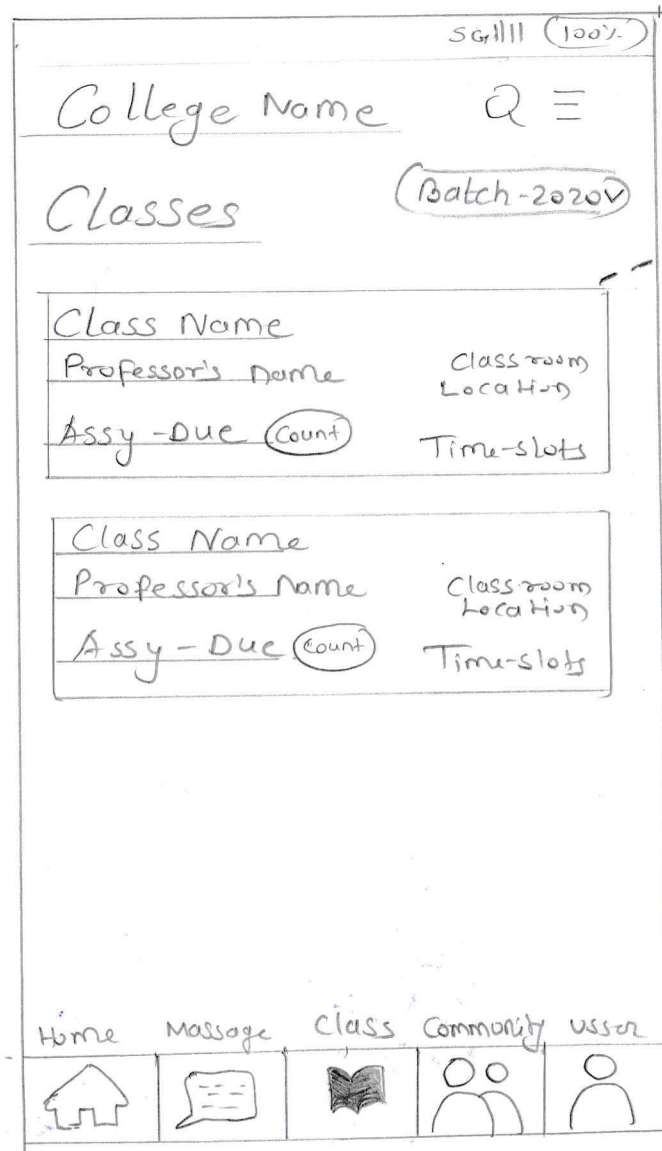 5G 100%
College Name
Classes
Batch-2020
Class Name
Professor's name
Classroom
Location
Assy-Due Count
Time-slots
Class Name
Professor's name
Classroom
Location
Assy-Due Count
Time-slots
Home Massage Class Community usser